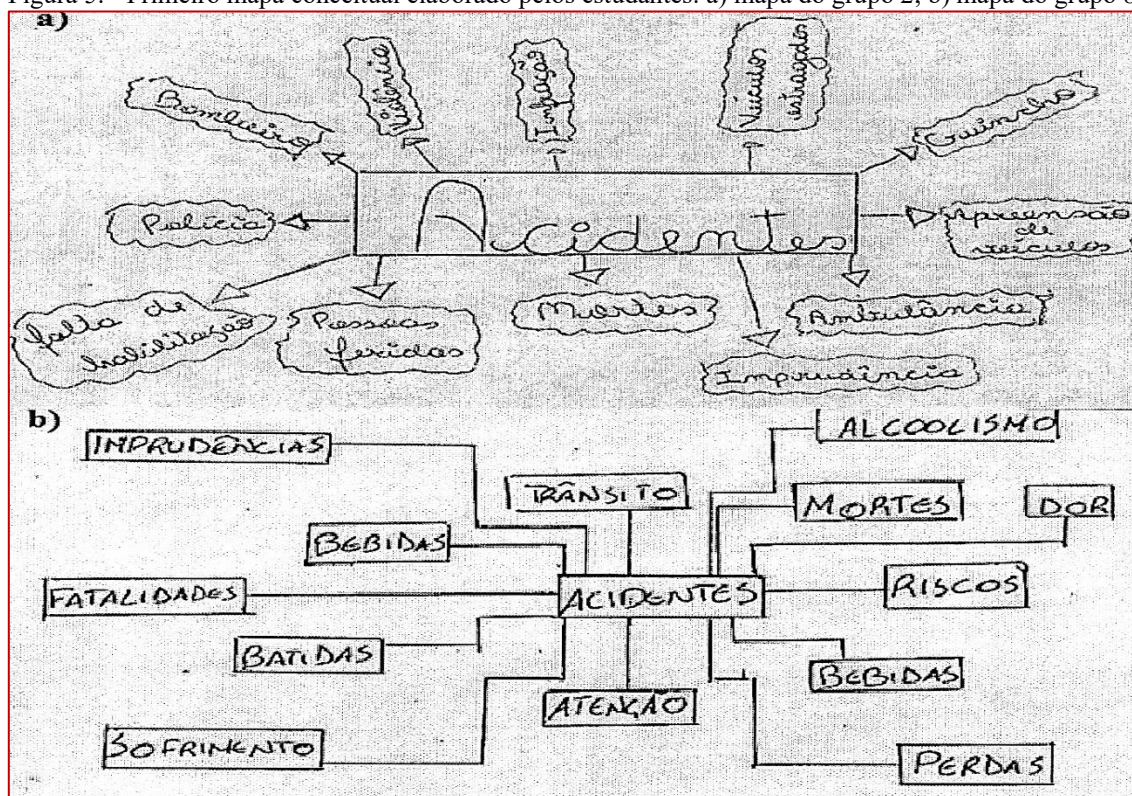 Figura 3. - Primeiro mapa conceitual elaborado pelos estudantes: a) mapa do grupo 2; b) mapa do grupo 6
a)
Bombeiro
Violência
Infração
Veículos
estragados
Guincho
Polícia
Acidentes
Apreensão
de
veículos
falta de
habilitação
Pessoas
feridas
Mortes
Ambulância
Imprudência
b)
ALCOOLISMO
IMPRUDÊNCIAS
TRÂNSITO
MORTES
DOR
BEBIDAS
FATALIDADES
ACIDENTES
RISCOS
BATIDAS
BEBIDAS
ATENÇÃO
SOFRIMENTO
PERDAS